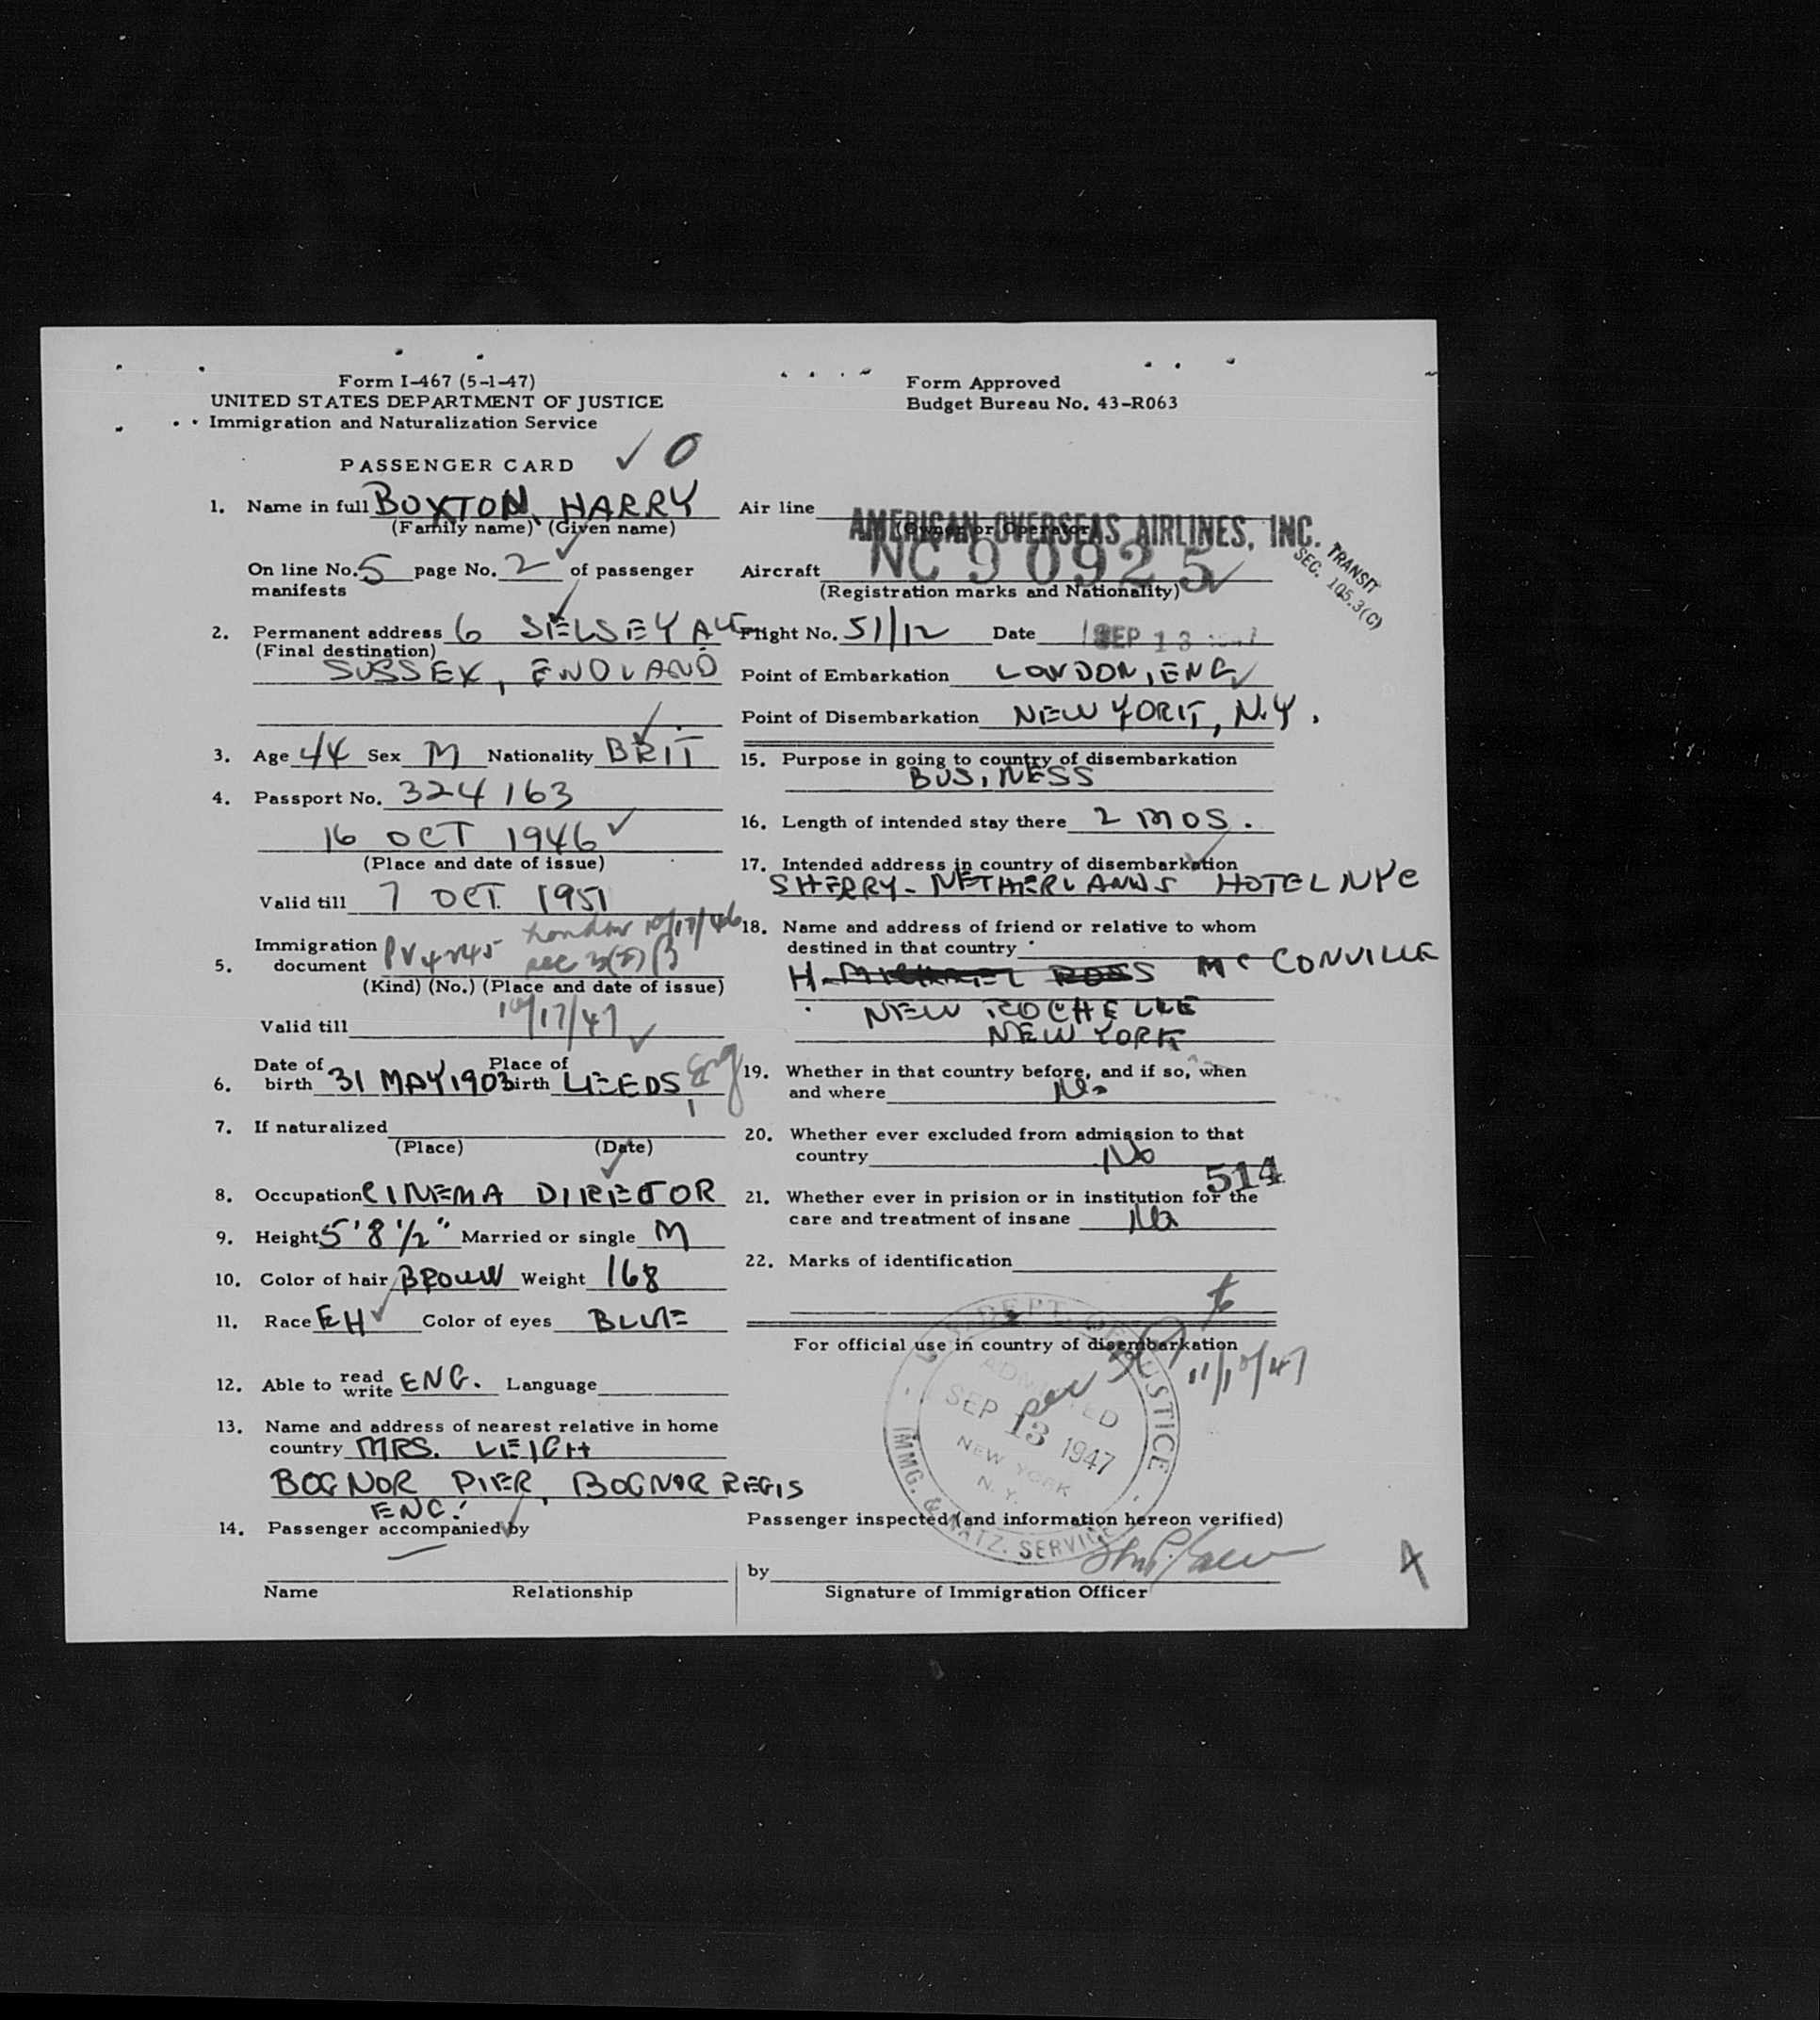 Form I-467 (5-1-47)
UNITED STATES DEPARTMENT OF JUSTICE
Immigration and Naturalization Service
PASSENGER CARD
O
1. Name in full BOXTON, HARRY
(Family name) (Given name)
On line No. 5 page No. 2 of passenger
manifests
2. Permanent address 6 SELSEY AVE
(Final destination)
SUSSEX, ENGLAND
3. Age 44 Sex M Nationality BRIT
4. Passport No. 324163
16 OCT 1946
(Place and date of issue)
Valid till 7 OCT. 1951
5. Immigration document PV 4245 London 10/17/46
sec 3(2) B
(Kind) (No.) (Place and date of issue)
Valid till 10/17/47
6. Date of birth 31 MAY 1903 Place of birth LEEDS, Eng
7. If naturalized
(Place) (Date)
8. Occupation CINEMA DIRECTOR
9. Height 5'8 1/2" Married or single M
10. Color of hair BROWN Weight 168
11. Race EH Color of eyes BLUE
12. Able to read write ENG. Language
13. Name and address of nearest relative in home
country MRS. LEIGH
BOGNOR PIER, BOGNOR REGIS
ENG.
14. Passenger accompanied by
Name Relationship
Form Approved
Budget Bureau No. 43-R063
Air line AMERICAN OVERSEAS AIRLINES, INC.
(Owner or Operator)
Aircraft NC 90925
(Registration marks and Nationality)
TRANSIT
SEC. 105.3(C)
Flight No. 51/12 Date SEP 13 1947
Point of Embarkation LONDON, ENG
Point of Disembarkation NEW YORK, N.Y.
15. Purpose in going to country of disembarkation
BUSINESS
16. Length of intended stay there 2 MOS.
17. Intended address in country of disembarkation
SHERRY-NETHERLANDS HOTEL NYC
18. Name and address of friend or relative to whom
destined in that country
H. MICHAEL ROSS McCONVILLE
NEW ROCHELLE
NEW YORK
19. Whether in that country before, and if so, when
and where No
20. Whether ever excluded from admission to that
country No
514
21. Whether ever in prision or in institution for the
care and treatment of insane No
22. Marks of identification
For official use in country of disembarkation
11/10/47
U.S. DEPT. OF JUSTICE
ADMITTED
SEP 13 1947
NEW YORK
N.Y.
IMMG. & NATZ. SERVICE
Passenger inspected (and information hereon verified)
by
Signature of Immigration Officer